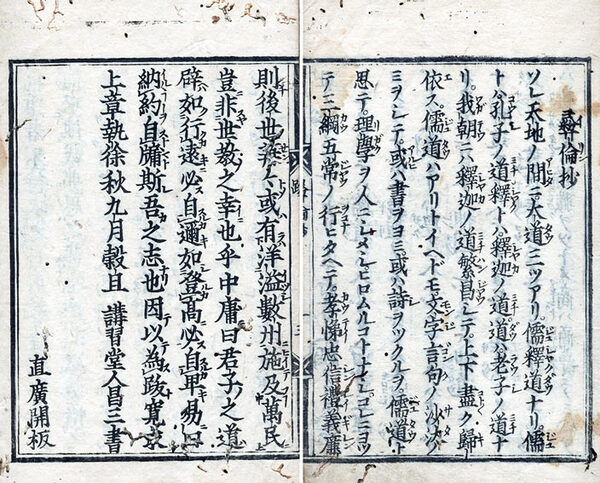 彝倫抄
ソレ天地ノ間ニ大道三ツアリ。儒釋道ナリ。儒
トハ孔子ノ道釋トハ釋迦ノ道道ハ老子ノ道ナ
リ。我朝ニハ釋迦ノ道繁昌シテ。上下盡ク歸
依ス。儒道ハアリトイヘドモ。文字言句ノ沙汰ノ
ミヲシテ。或ハ書ヲヨミ或ハ詩ヲツクルヲ儒道ト
思テ。理學ヲ人ニシメシヒロムルコトナシ。コレニヨツ
テ三綱五常ノ行ヒタヘテ。孝悌忠信禮義廉
則後世或有洋溢數州施及萬民
豈非世教之幸也乎中庸曰君子之道
辟如行遠必自邇如登高必自卑易曰
納約自牖斯吾之志也因以為跋寛永
上章執徐秋九月穀旦 講習堂人昌三書
直廣開板